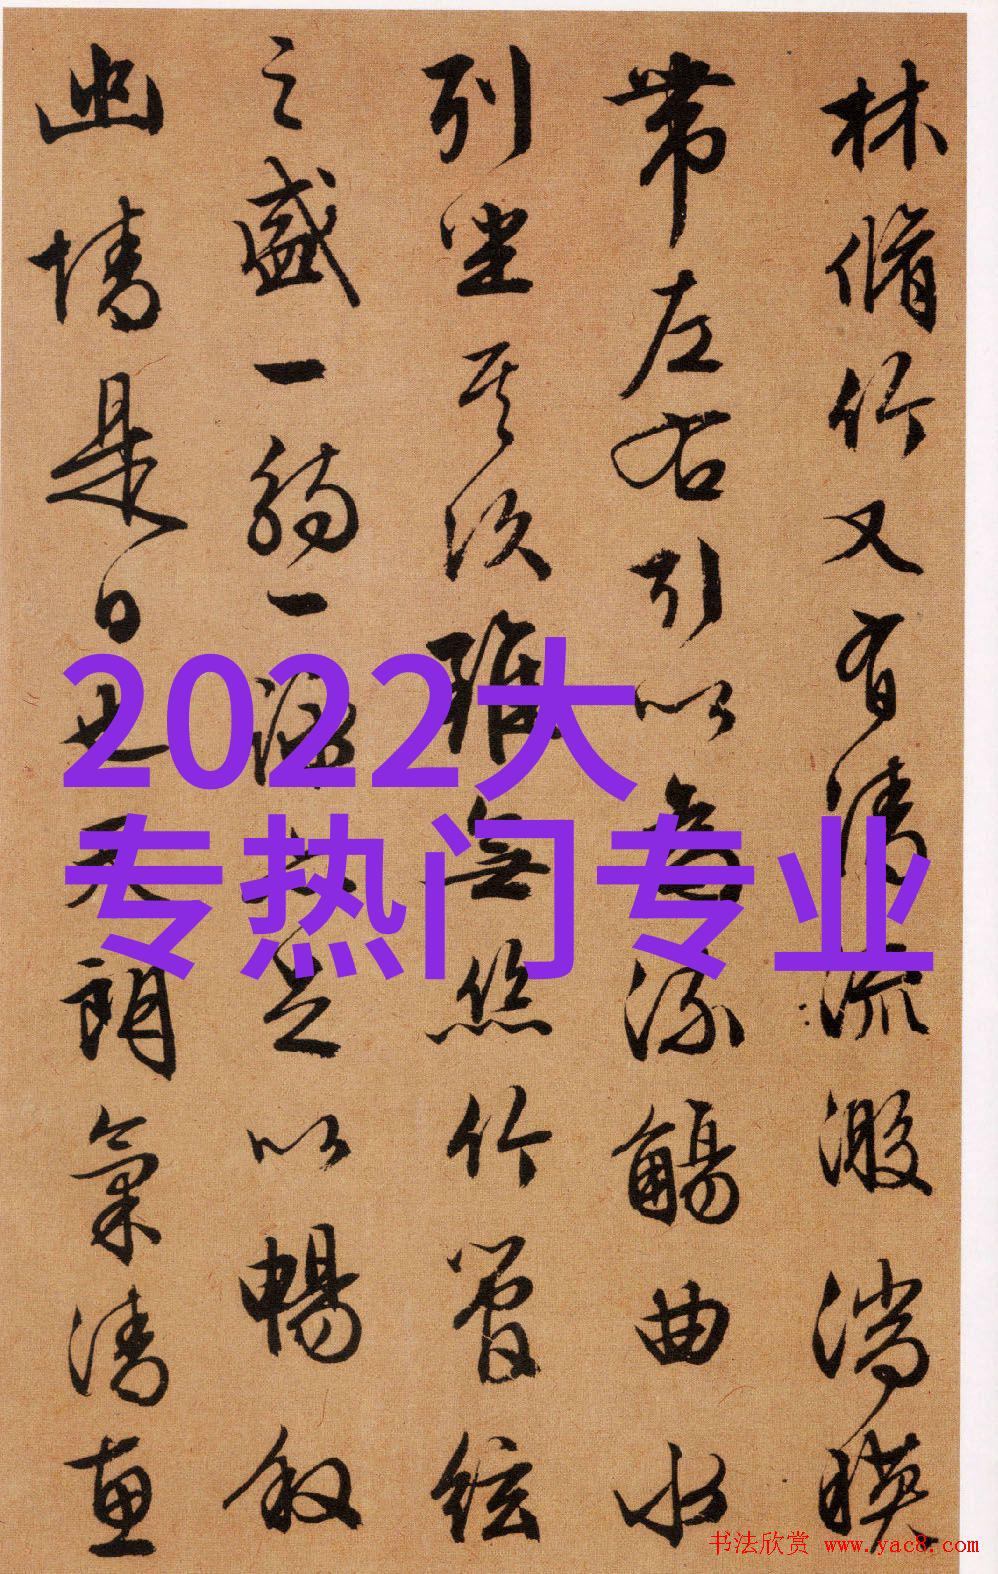 林脩竹又有清流激湍暎
帶左右引以為流觴曲水
列坐其次雖無絲竹管絃
之盛一觴一詠亦足以暢敘
幽情是日也天朗氣清惠
2022大
专热门专业
书法欣赏 www.yac8.com